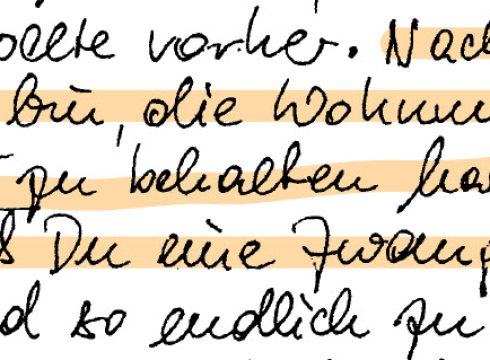 ollte vorher. Nac
bin, die Wohnun
zu behalten ha
Du eine Zwang
d so endlich zu